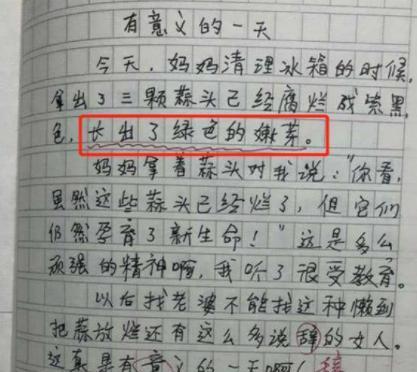 有意义的一天
今天，妈妈清理冰箱的时候，
拿出了三颗蒜头已经腐烂成紫黑
色，长出了绿色的嫩芽。
妈妈拿着蒜头对我说："你看，
虽然这些蒜头已经烂了，但它们
仍然孕育了新生命！"这是多么
顽强的精神啊，我听了很受教育。
以后找老婆不能找这种懒到
把蒜放烂还有这么多说辞的女人。
这真是有意义的一天啊！